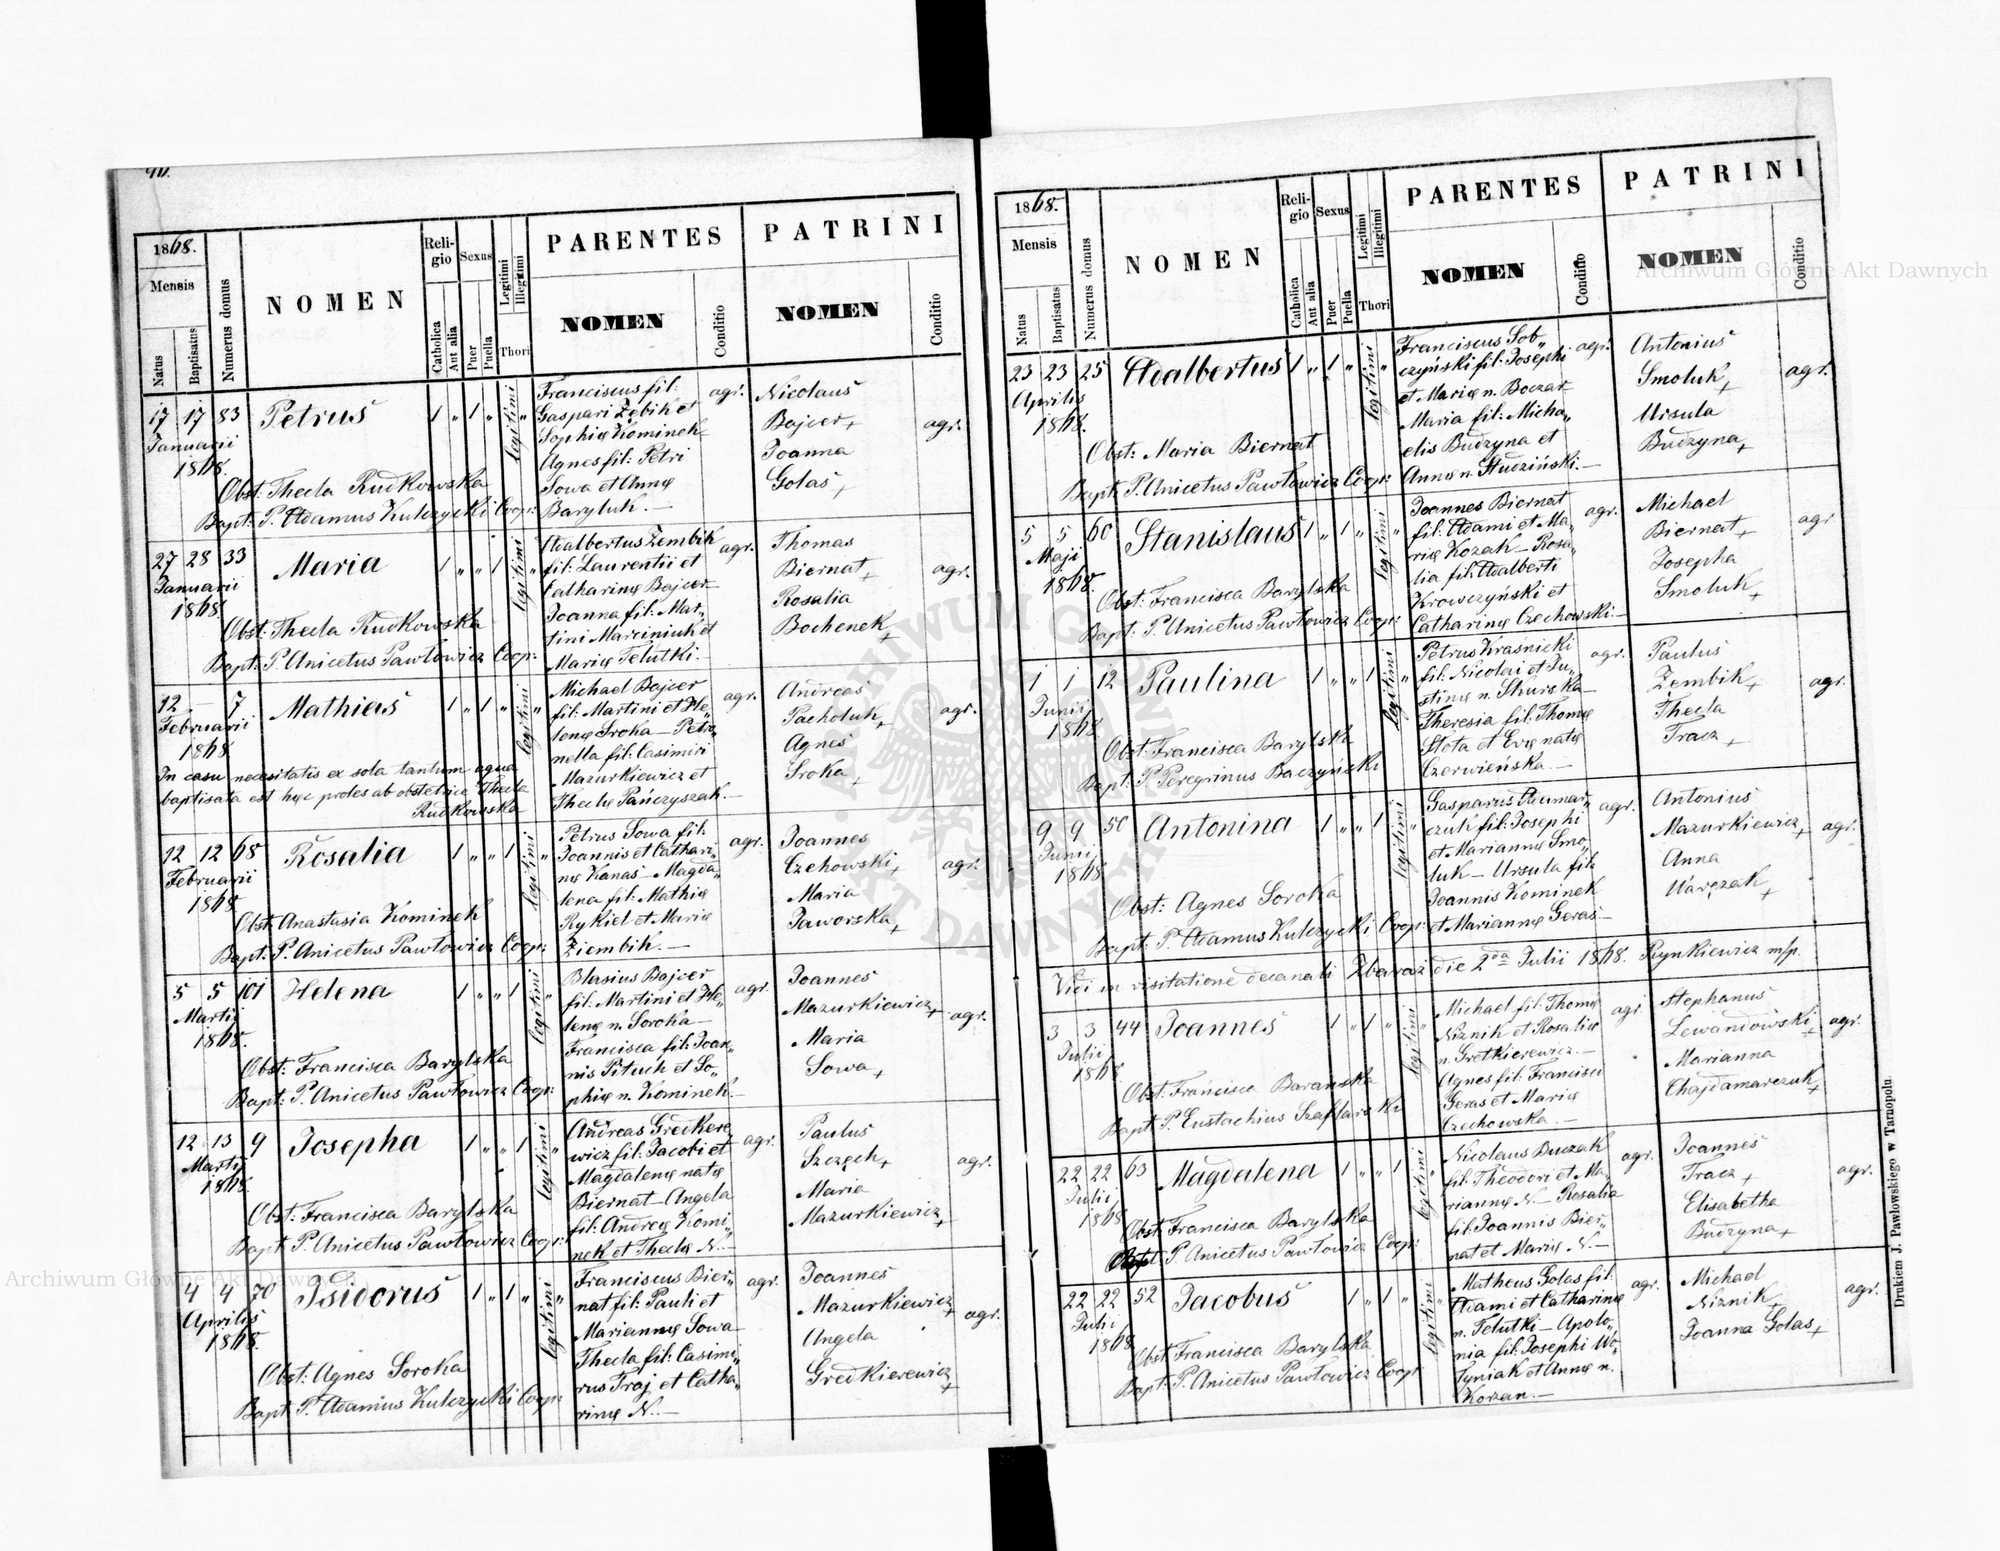 1868.
Mensis
Natus
Baptisatus
Numerus domus
NOMEN
Religio
Catholica
Aut alia
Sexus
Puer
Puella
Legitimi
Illegitimi
Thori
PARENTES
NOMEN
Conditio
PATRINI
NOMEN
Conditio
17 17 83 Petrus 1 „ 1 „ legitimi „
Januarii
1868.
Obst: Thecla Rudkowska
Bapt: P. Adamus Kulczycki Coop:
Franciscus fil: agr.
Gaspari Zębik et
Sophię Kominek
Agnes fil: Petri
Sowa et Annę
Baryluk. —
Nicolaus
Bojcer +
Joanna
Golas +
agr.
27 28 33 Maria 1 „ „ 1 legitimi „
Januarii
1868.
Obst: Thecla Rudkowska
Bapt: P. Anicetus Pawłowicz Coop:
Adalbertus Zembik agr.
fil: Laurentii et
Catharinę Bojcer
Joanna fil: Mar„
tini Marciniuk et
Marię Telutki. —
Thomas
Biernat +
Rosalia
Bochenek +
agr.
12 — 7 Mathias 1 „ 1 „ legitimi „
Februarii
1868
In casu necesitatis ex sola tantum aqua
baptisata est hęc proles ab obstetrice Thecla
Rudkowska
Michael Bojcer agr.
fil: Martini et He„
lenę Sroka — Petro„
nella fil: Casimiri
Mazurkiewicz et
Theclę Pańczyszak. —
Andreas
Pacholuk +
Agnes
Sroka +
agr.
12 12 68 Rosalia 1 „ „ 1 legitimi „
Februarii
1868
Obst: Anastasia Kominek
Bapt: P. Anicetus Pawłowicz Coop:
Petrus Sowa fil: agr.
Joannis et Cathari„
nę Kanas — Magda„
lena fil: Mathię
Rykiel et Marię
Ziembik. —
Joannes
Czehowski +
Maria
Jaworska +
agr.
5 5 101 Helena 1 „ „ 1 legitimi „
Martii
1868.
Obst: Francisca Barylska
Bapt: P. Anicetus Pawłowicz Coop:
Blasius Bojcer agr.
fil: Martini et He„
lenę n. Soroka —
Francisca fil: Joan„
nis Pituch et So„
phię n. Kominek. —
Joannes
Mazurkiewicz +
Maria
Sowa +
agr.
12 13 9 Josepha 1 „ „ 1 legitimi „
Martii
1868.
Obst: Francisca Barylska
Bapt: P. Anicetus Pawłowicz Coop:
Andreas Gredkere agr.
wicz fil: Jacobi et
Magdalenę natę
Biernat — Angela
fil: Andreę Komi„
nek et Theclę N. —
Paulus
Szczęch +
Maria
Mazurkiewicz +
agr.
4 4 70 Isidorus 1 „ 1 „ legitimi „
Aprilis
1868.
Obst: Agnes Soroka
Bapt: P. Adamus Kulczycki Coop:
Franciscus Bier„ agr.
nat fil: Pauli et
Mariannę Sowa
Thecla fil: Casimi„
rus Traj et Catha„
rinę N. —
Joannes
Mazurkiewicz +
Angela
Gredkierewicz +
agr.
1868.
Mensis
Natus
Baptisatus
Numerus domus
NOMEN
Religio
Catholica
Aut alia
Sexus
Puer
Puella
Legitimi
Illegitimi
Thori
PARENTES
NOMEN
Conditio
PATRINI
NOMEN
Conditio
23 23 25 Adalbertus 1 „ 1 „ legitimi „
Aprilis
1868.
Obst: Maria Biernat
Bapt: P. Anicetus Pawłowicz Coop:
Franciscus Sob„ agr.
czyński fil: Josephi
et Marię n. Boczar
Maria fil: Micha„
elis Budzyna et
Annę n. Studziński. —
Antonius
Smoluk +
Ursula
Budzyna +
agr.
5 5 60 Stanislaus 1 „ 1 „ legitimi „
Maji
1868.
Obst: Francisca Barylska
Bapt: P. Anicetus Pawłowicz Coop:
Joannes Biernat agr.
fil: Adami et Ma„
rię Kozak — Rosa„
lia fil: Adalberti
Krowczyński et
Catharinę Czechowski. —
Michael
Biernat +
Josepha
Smoluk +
agr
1 1 12 Paulina 1 „ „ 1 legitimi „
Junii
1868
Obst: Francisca Barylska
Bapt: P. Peregrinus Baczyński
Petrus Kraśnicki agr.
fil: Nicolai et Ju„
stinę n. Skurska
Theresia fil: Thomę
Słota et Evę natę
Czerwieńska. —
Paulus
Zembik +
Thecla
Tracz +
agr.
9 9 50 Antonina 1 „ „ 1 legitimi „
Junii
1868
Obst: Agnes Soroka
Bapt: P. Adamus Kulczycki Coop:
Gasparus Kumar„ agr.
czuk fil: Josephi
et Mariannę Smo„
luk — Ursula fil:
Joannis Kominek
et Mariannę Geras —
Antonius
Mazurkiewicz +
Anna
Warczak +
agr.
Vidi in visitatione decanali Zbaraż die 2da Julii 1868. Rynkiewicz m/p.
3 3 44 Joannes 1 „ 1 „ legitimi „
Julii
1868
Obst: Francisca Barańska
Bapt: P. Eustachius Szaflarski
Michael fil: Thomę agr
Niznik et Rosalię
n. Gretkierewicz. —
Agnes fil: Francisci
Geras et Marię
Czechowska. —
Stephanus
Lewandowski +
Marianna
Chajdamarczuk +
agr.
22 22 63 Magdalena 1 „ „ 1 legitimi „
Julii
1868
Obst: Francisca Barylska
P. Anicetus Pawłowicz Coop:
Nicolaus Buczak agr.
fil: Theodori et Ma„
riannę N. — Rosalia
fil: Joannis Bier„
nat et Marię N. —
Joannes
Tracz +
Elisabetha
Budzyna +
agr.
22 22 52 Jacobus 1 „ 1 „ legitimi „
Julii
1868
Obst: Francisca Barylska
Bapt: P. Anicetus Pawłowicz Coop:
Matheus Golas fil: agr.
Adami et Catharinę
n. Telutki — Apolo„
nia fil: Josephi Wo„
tyniak et Annę n.
Korzan. —
Michael
Niznik +
Joanna Golas +
agr.
Drukiem J. Pawłowskiego w Tarnopolu.
Archiwum Główne Akt Dawnych
Archiwum Główne Akt Dawnych
ARCHIWUM GŁÓWNE AKT DAWNYCH